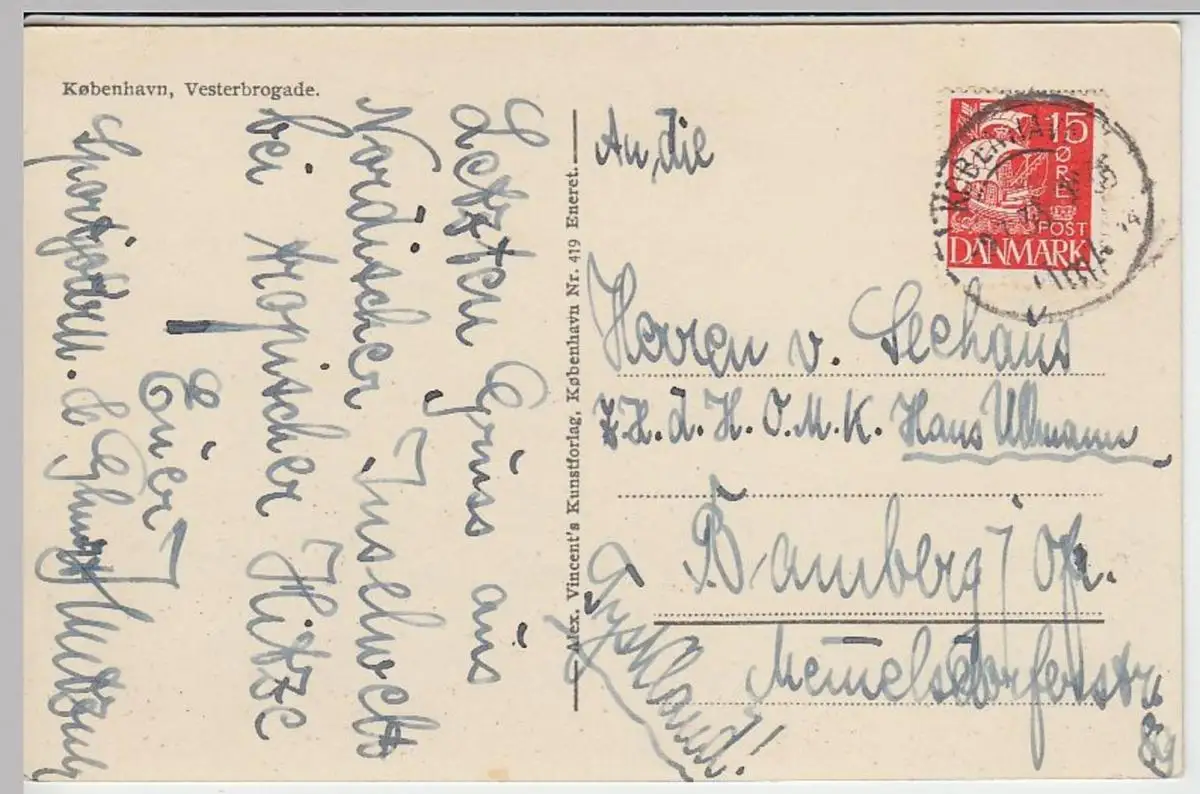 København, Vesterbrogade.
Letzten Gruss aus
Nordischer Inselwelt
bei tropischer Hitze
Euer
Alex. Vincent's Kunstforlag, København Nr. 419 Eneret.
15
ØRE
POST
DANMARK
KØBENHAVN
An die
Herren v. Seehaus
z.H.d.H.O.M.K. Hans Ullmann
Bamberg / Ofr.
Memmelsdorferstr.
89
Tyskland!